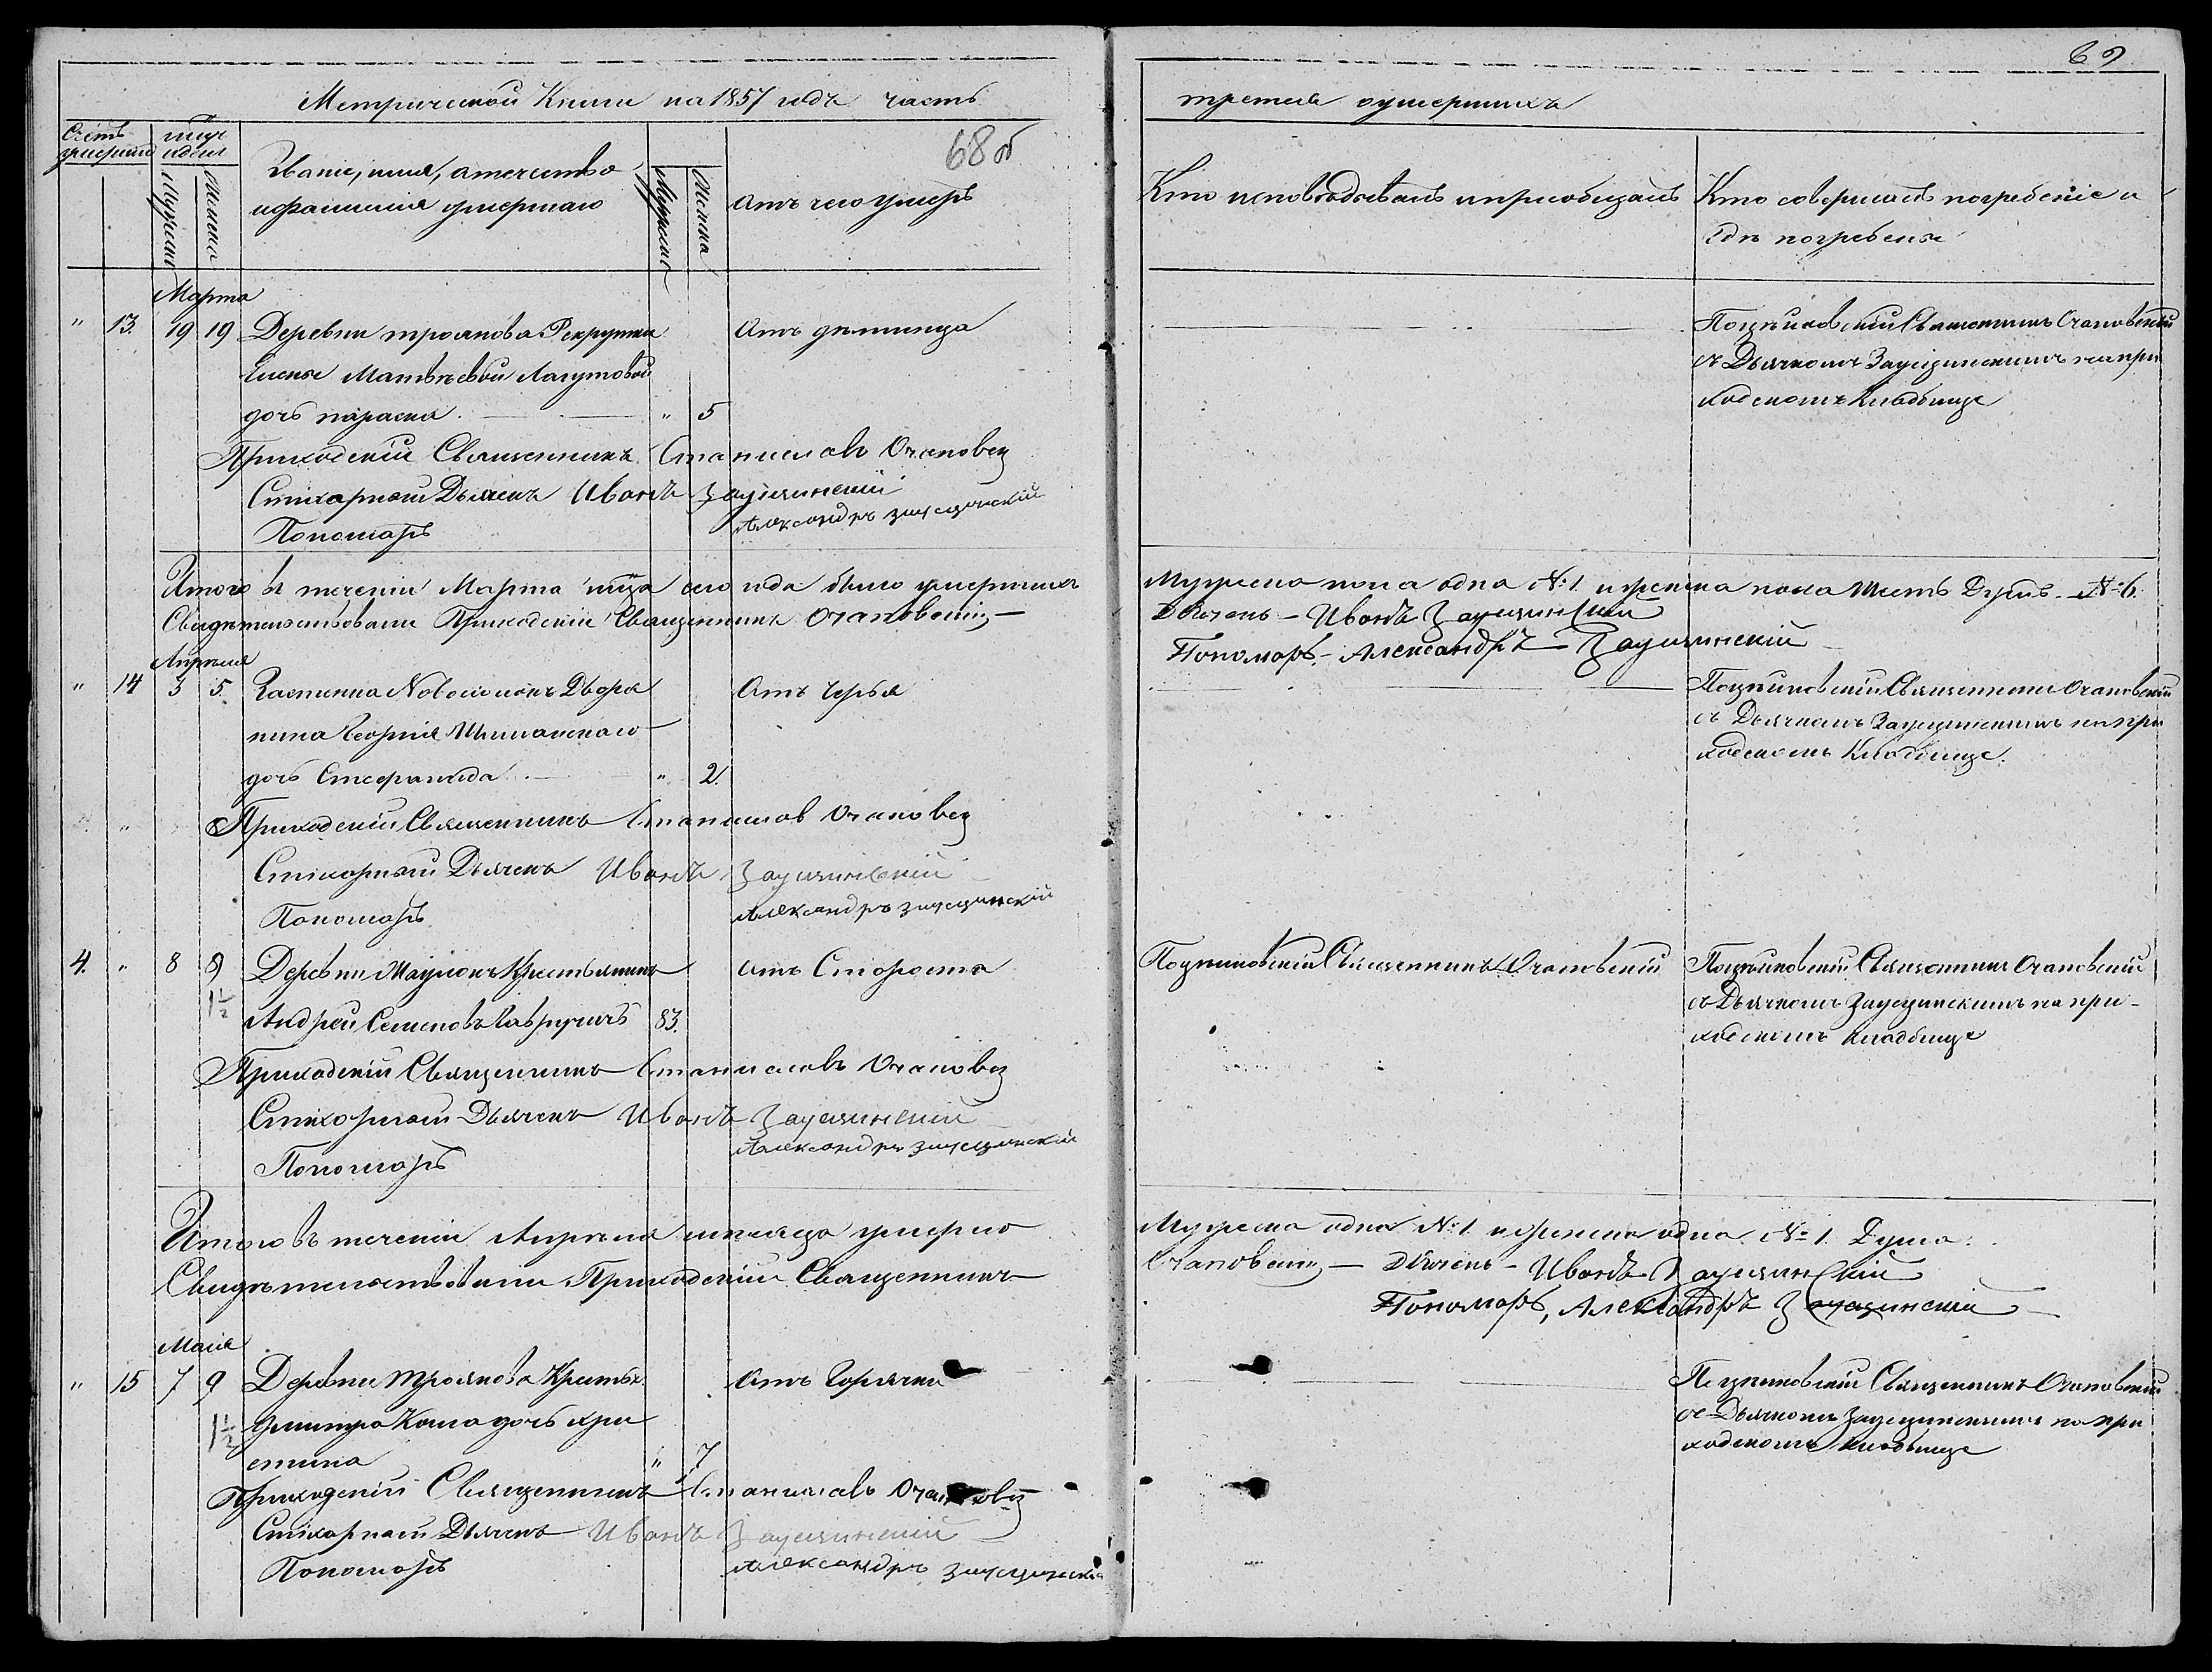 69
Метрической Книги на 1857 годъ часть
третья о умершихъ
68 об
Счетъ умершихъ
Мужеска
Женска
Званіе, имя, отечество
и фамилия умершаго
Мужеска
Женска
Отъ чего умеръ
Кто исповѣдовалъ и пріобщалъ
Кто совершалъ погребеніе и
гдѣ погребены
Марта
" 13. 19 19 Деревни Троянова Рекрутки
Елены Матвѣевой Лагутовой
дочь Параска. " 5
Отъ
Поцѣиковскій Священникъ Очаповскій
съ Дьячкомъ Заусцинскимъ на при
ходскомъ Кладбище
Приходскій Священникъ Станиславъ Очаповскій
Стихарный Дьячекъ Иванъ Заусцинскій
Пономарь Александръ Заусцинскій
Итого въ теченіи Марта мца сего года было умершихъ
Мужеска пола одна №1 и женска пола шесть Душъ. №6.
Свидѣтельствовали Приходскій Священникъ Очаповскій
Дьячекъ - Иванъ Заусцинскій
Пономарь, - Александръ Заусцинскій
Апреля
" 14 3 5. Застѣнка Дворя
нина Георгія
дочь Стефанида " 2.
Отъ
Поцѣиковскій Священникъ Очаповскій
съ Дьячкомъ Заусцинскимъ на при
ходскомъ Кладбище.
Приходскій Священникъ Станиславъ Очаповскій
Стихарный Дьячекъ Иванъ Заусцинскій
Пономарь Александръ Заусцинскій
4. " 8 9 Деревни Крестьянинъ
1½
Андрей Семеновъ Гаврусичъ 83.
Отъ Старости
Поцѣиковскій Священникъ Очаповскій
Поцѣиковскій Священникъ Очаповскій
съ Дьячкомъ Заусцинскимъ на при-
ходскомъ Кладбище
Приходскій Священникъ Станиславъ Очаповскій
Стихарный Дьячекъ Иванъ Заусцинскій
Пономарь Александръ Заусцинскій
Итого въ теченіи Апрѣля мѣсяца умерло
Мужеска одна №1 и женска одна №1 Душа.
Свидѣтельствовали Приходскій Священникъ
Очаповскій - Дьячекъ - Иванъ Заусцинскій
Пономарь, Александръ Заусцинскій
Маія
" 15 7 9 Деревни Троянова Крестьян.
1½
Дмитра дочь Хри
стина " 7
Отъ Горячки
Поцѣиковскій Священникъ Очаповскій
съ Дьячкомъ Заусцинскимъ на при
ходскомъ Кладбище
Приходскій Священникъ Станиславъ Очаповскій
Стихарный Дьячекъ Иванъ Заусцинскій
Пономарь Александръ Заусцинскій